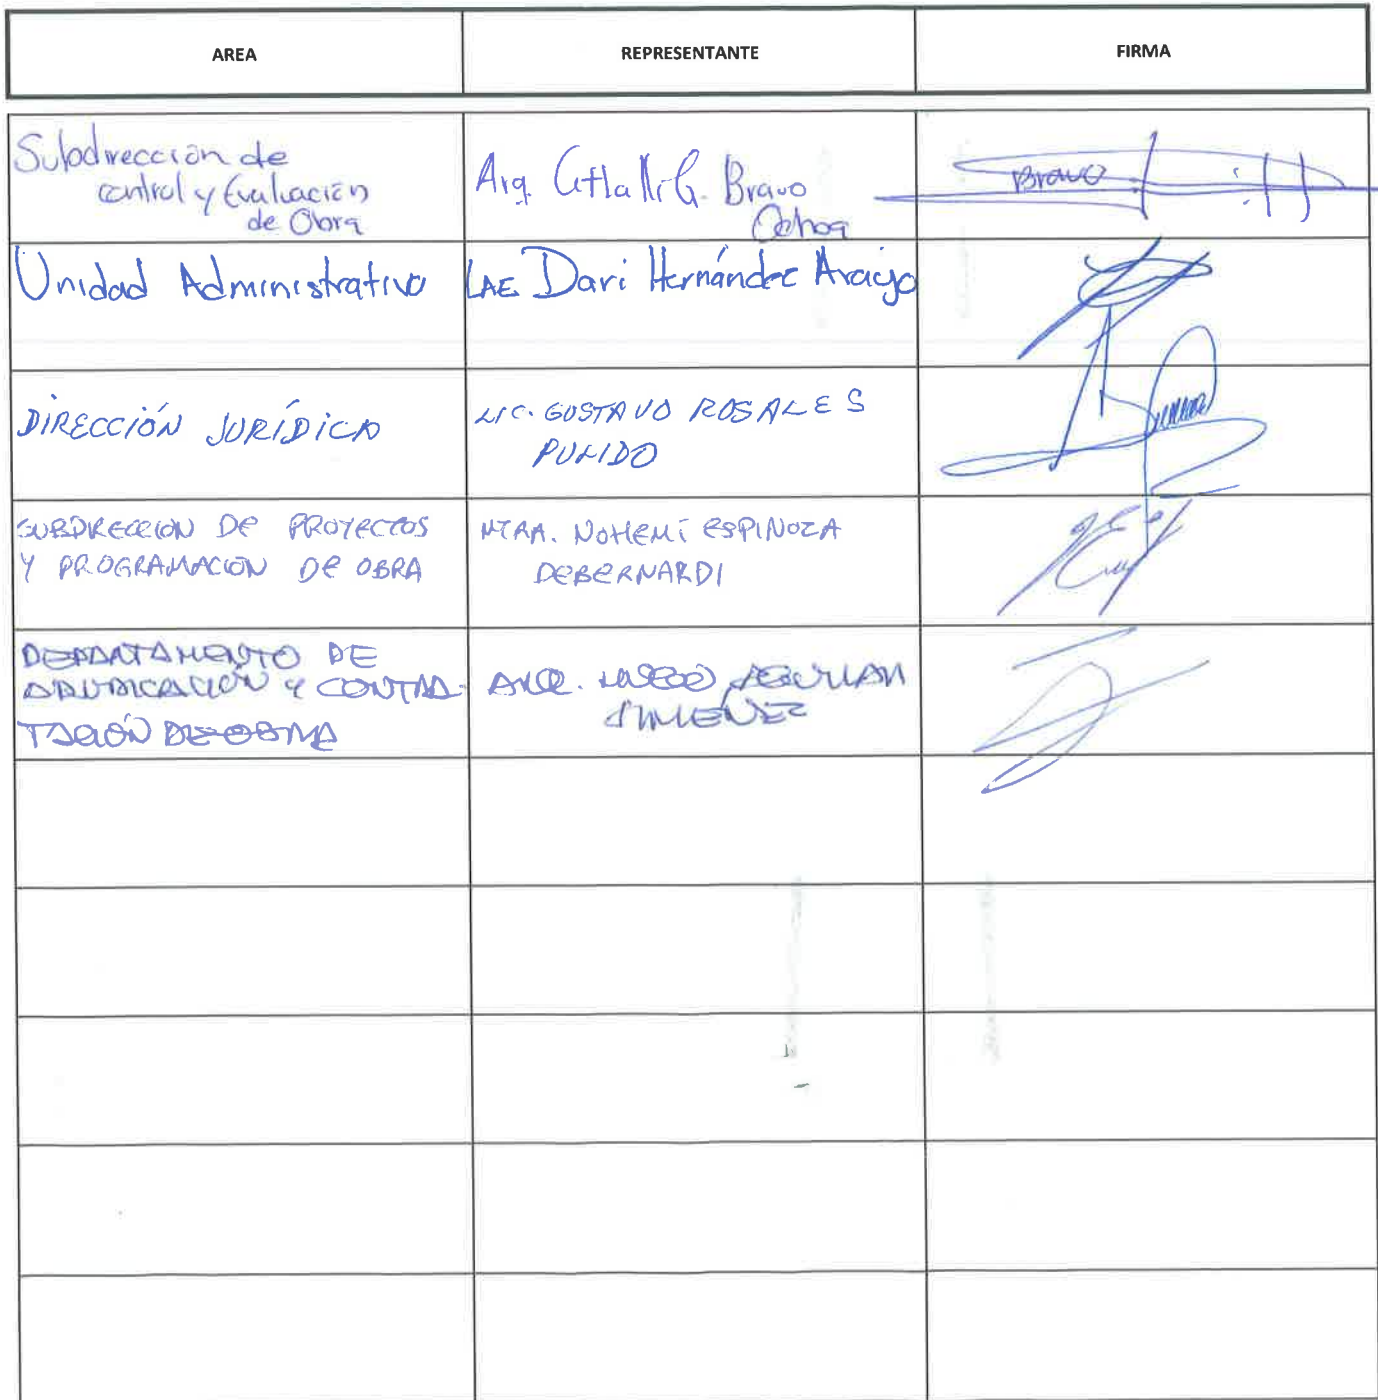 AREA
REPRESENTANTE
FIRMA
Subdirección de
control y Evaluación
de Obra
Arq. Citlalli G. Bravo
Ochoa
Bravo
Unidad Administrativa
LAE Dari Hernández Araujo
DIRECCIÓN JURÍDICA
LIC. GUSTAVO ROSALES
PULIDO
SUBDIRECCION DE PROYECTOS
Y PROGRAMACION DE OBRA
MTRA. NOHEMÍ ESPINOZA
DEBERNARDI
DEPARTAMENTO DE
ADJUDICACIÓN Y CONTRA-
TACIÓN DE OBRA
ARQ.
JIMENEZ